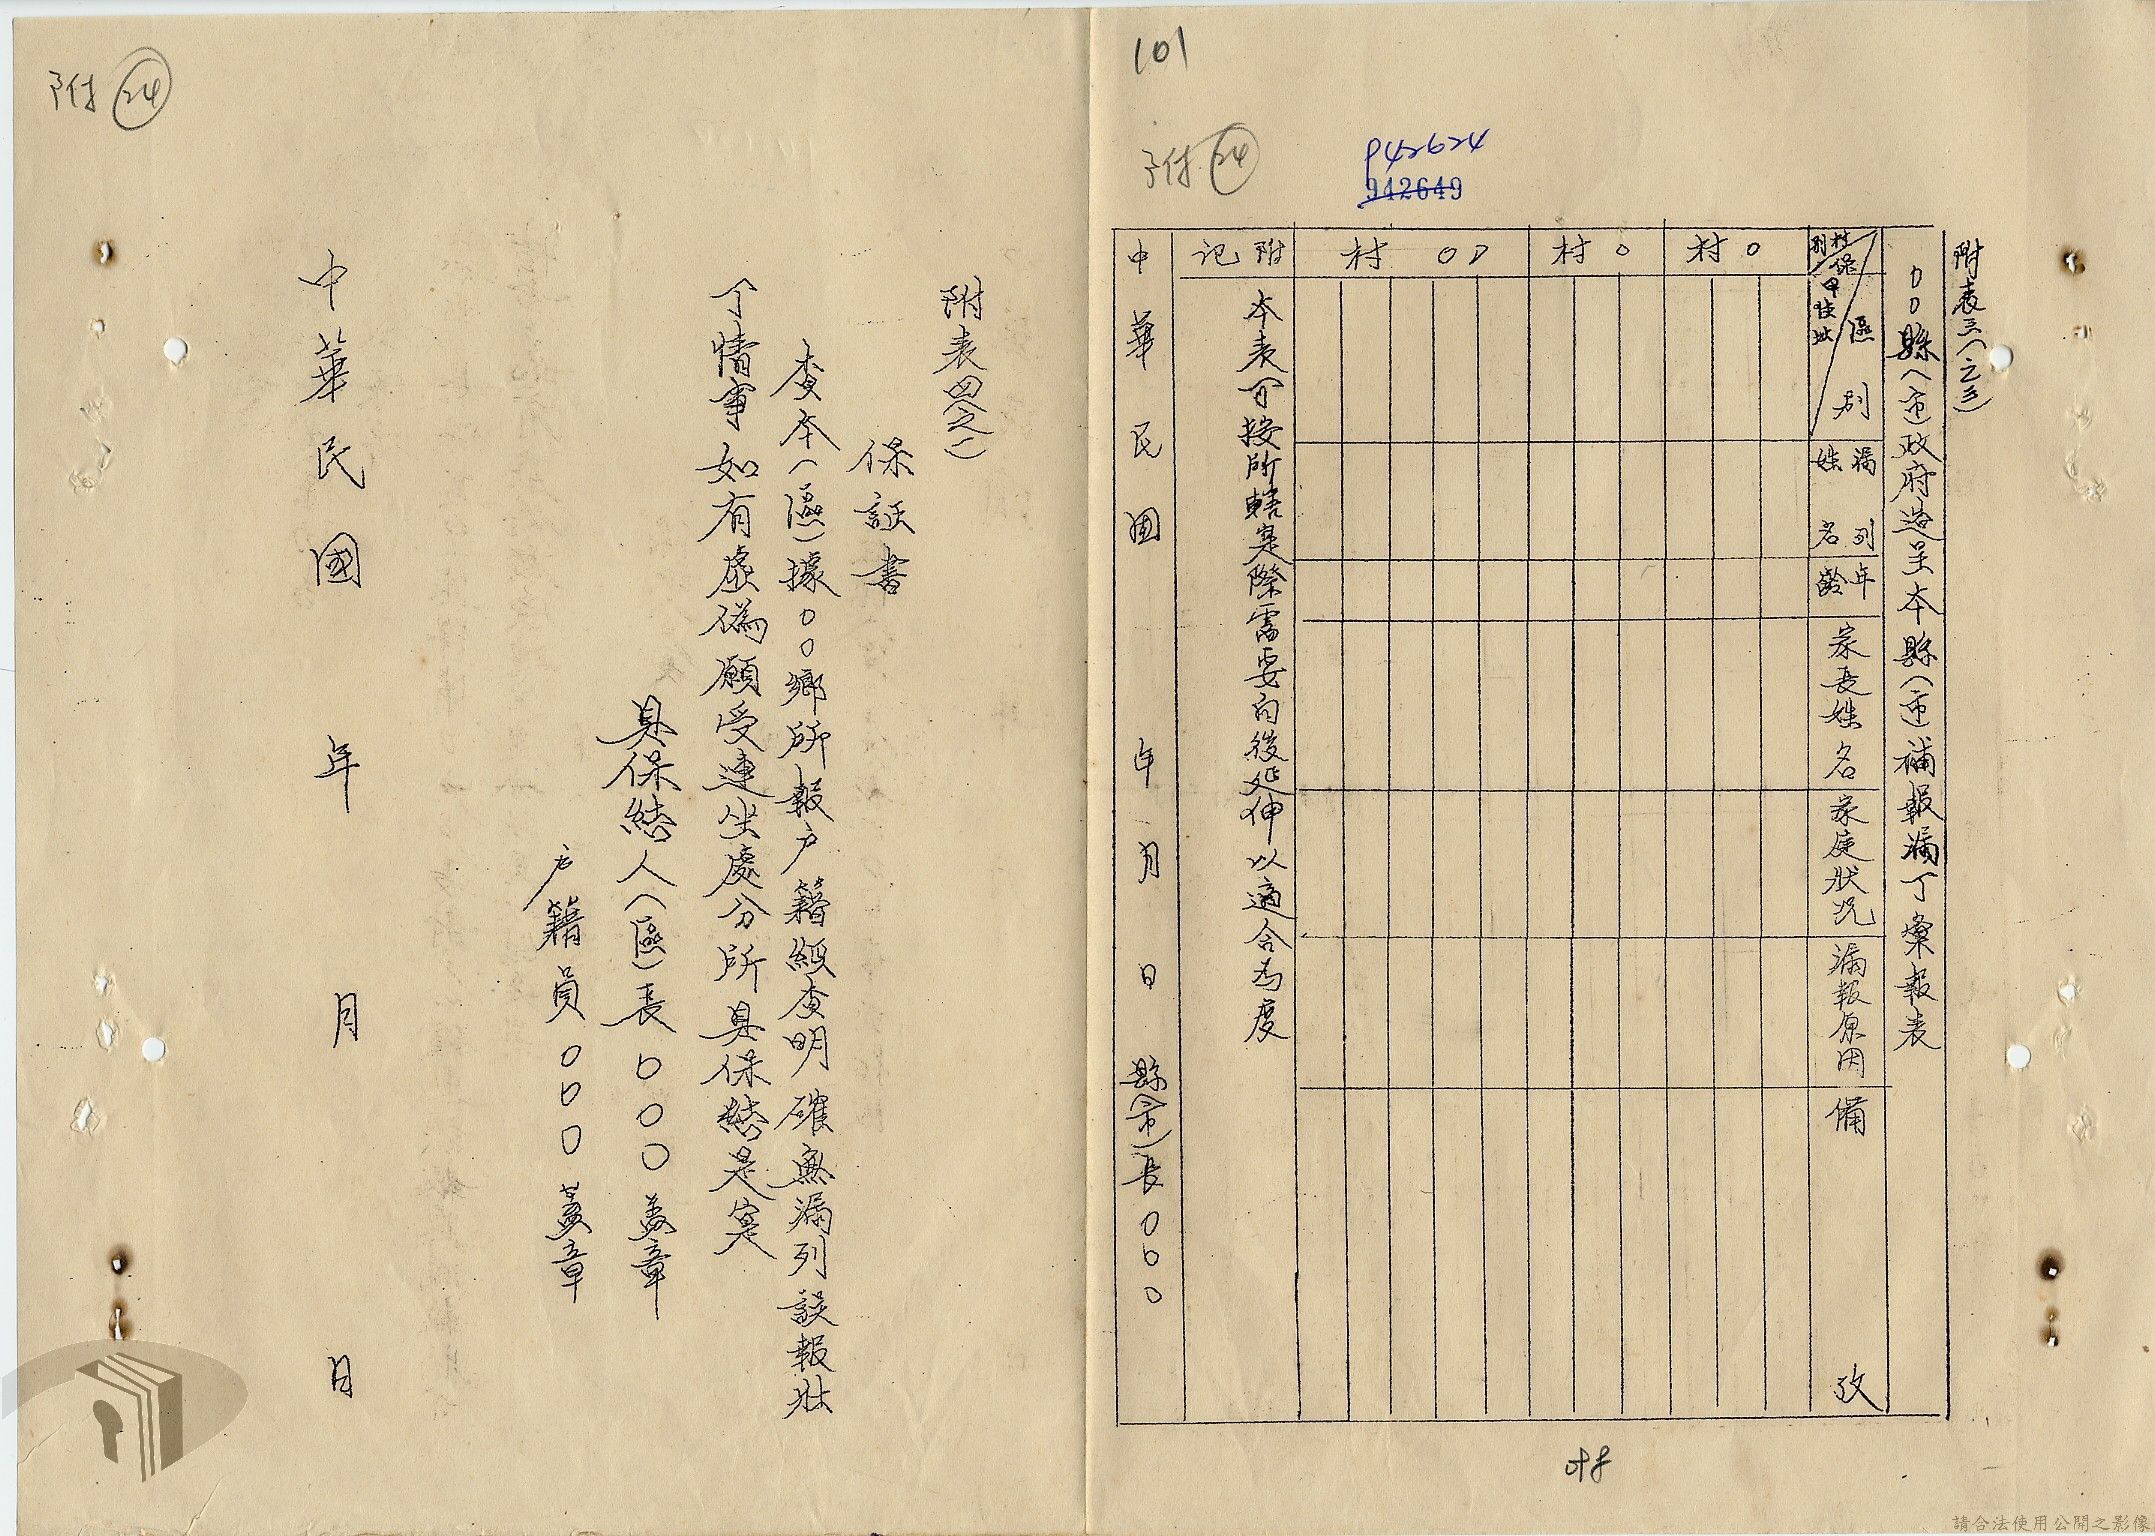 101
附 24
942624
942649
附表三(之三)
〇〇縣(市)政府造呈本縣(市)補報漏丁彙報表
區別
村保甲住址別
漏列姓名
年齡
家長姓名
家庭狀況
漏報原因
備攷
〇村
〇村
〇〇村
附記
本表可按所轄實際需要向後延伸以適合為度
中華民國 年 月 日 縣(市)長〇〇〇
附 24
附表四(之一)
保証書
查本(區)據〇〇鄉所報户籍經查明確無漏列誤報壯
丁情事如有虛偽願受連坐處分所具保結是實
具保結人(區)長〇〇〇蓋章
户籍員〇〇〇蓋章
中華民國 年 月 日
請合法使用公開之影像